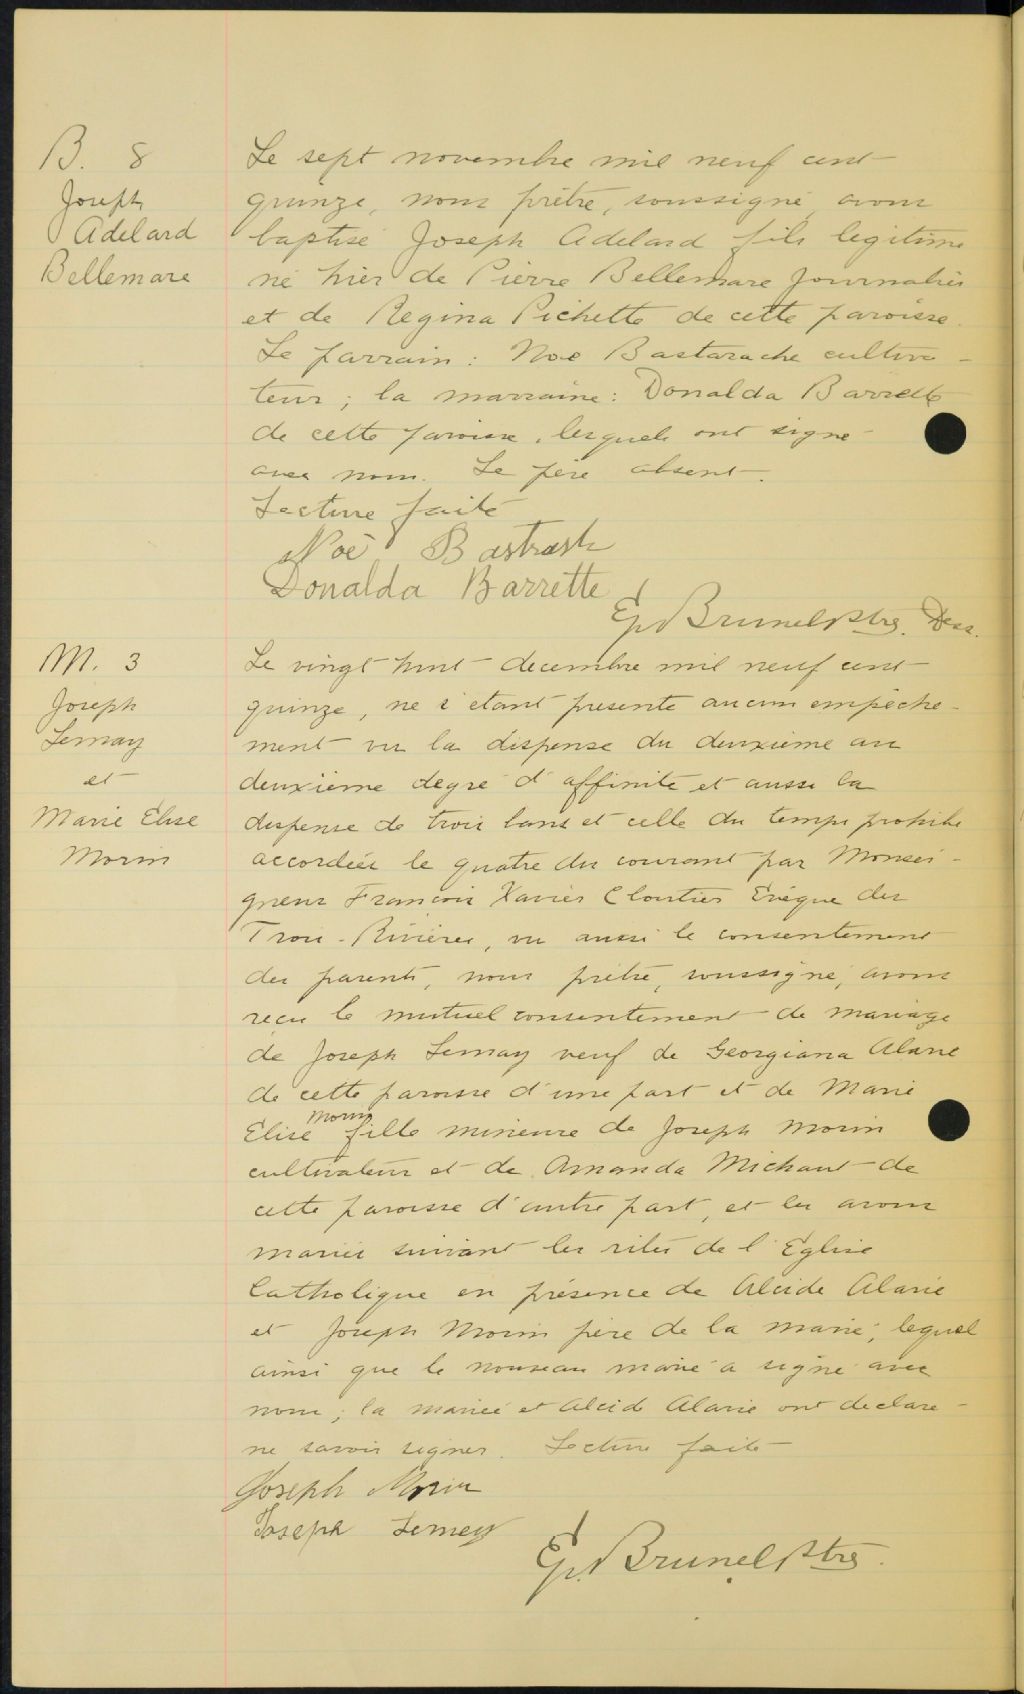 B. 8
Joseph
Adelard
Bellemare
Le sept novembre mil neuf cent
quinze, nous prêtre, soussigné, avons
baptisé Joseph Adelard fils legitime
né hier de Pierre Bellemare journalier
et de Regina Pichette de cette paroisse.
Le parrain: Noe Bastarache cultiva-
teur; la marraine: Donalda Barrette
de cette paroisse, lesquels ont signé
avec nous. Le père absent.
Lecture faite
Noé Bastrash
Donalda Barrette
Ep. Brunel Ptre. Dess.
M. 3
Joseph
Lemay
et
Marie Elise
Morin
Le vingt huit decembre mil neuf cent
quinze, ne s'etant presenté aucun empêche-
ment vu la dispense du deuxième au
deuxième degré d'affinité et aussi la
dispense de trois bans et celle du temps prohibé
accordées le quatre du courant par Monsei-
gneur Francois Xavier Cloutier Evêque des
Trois-Rivières, vu aussi le consentement
des parents, nous prêtre, soussigné, avons
recu le mutuel consentement de mariage
de Joseph Lemay veuf de Georgiana Alarie
de cette paroisse d'une part et de Marie
Elise Morin fille mineure de Joseph Morin
cultivateur et de Amanda Michaut de
cette paroisse d'autre part, et les avons
mariés suivant les rites de l'Eglise
Catholique en présence de Alcide Alarie
et Joseph Morin père de la marié, lequel
ainsi que le nouveau marié a signé avec
nous; la mariée et Alcide Alarie ont declaré
ne savoir signer. Lecture faite
Joseph Morin
Joseph Lemay
Ep. Brunel Ptre.